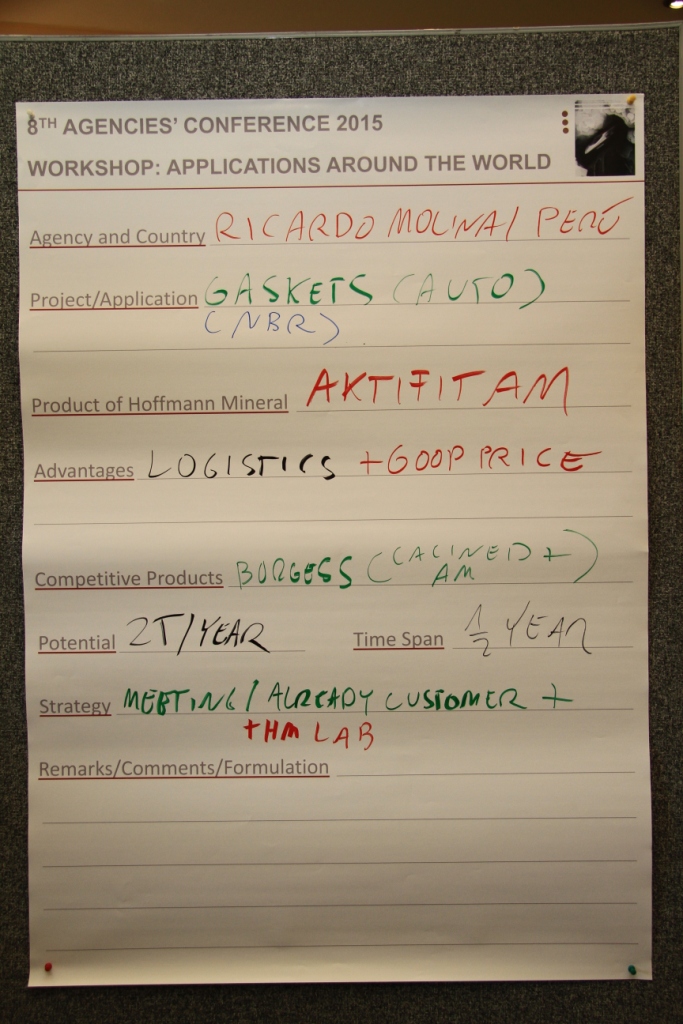 8TH AGENCIES' CONFERENCE 2015
WORKSHOP: APPLICATIONS AROUND THE WORLD
Agency and Country RICARDO MOLINA / PERÚ
Project/Application GASKETS (AUTO)
(NBR)
Product of Hoffmann Mineral AKTIFIT AM
Advantages LOGISTICS + GOOD PRICE
Competitive Products BURGESS (CALCINED + AM)
Potential 2T/YEAR Time Span 1/2 YEAR
Strategy MEETING / ALREADY CUSTOMER +
+ HM LAB
Remarks/Comments/Formulation